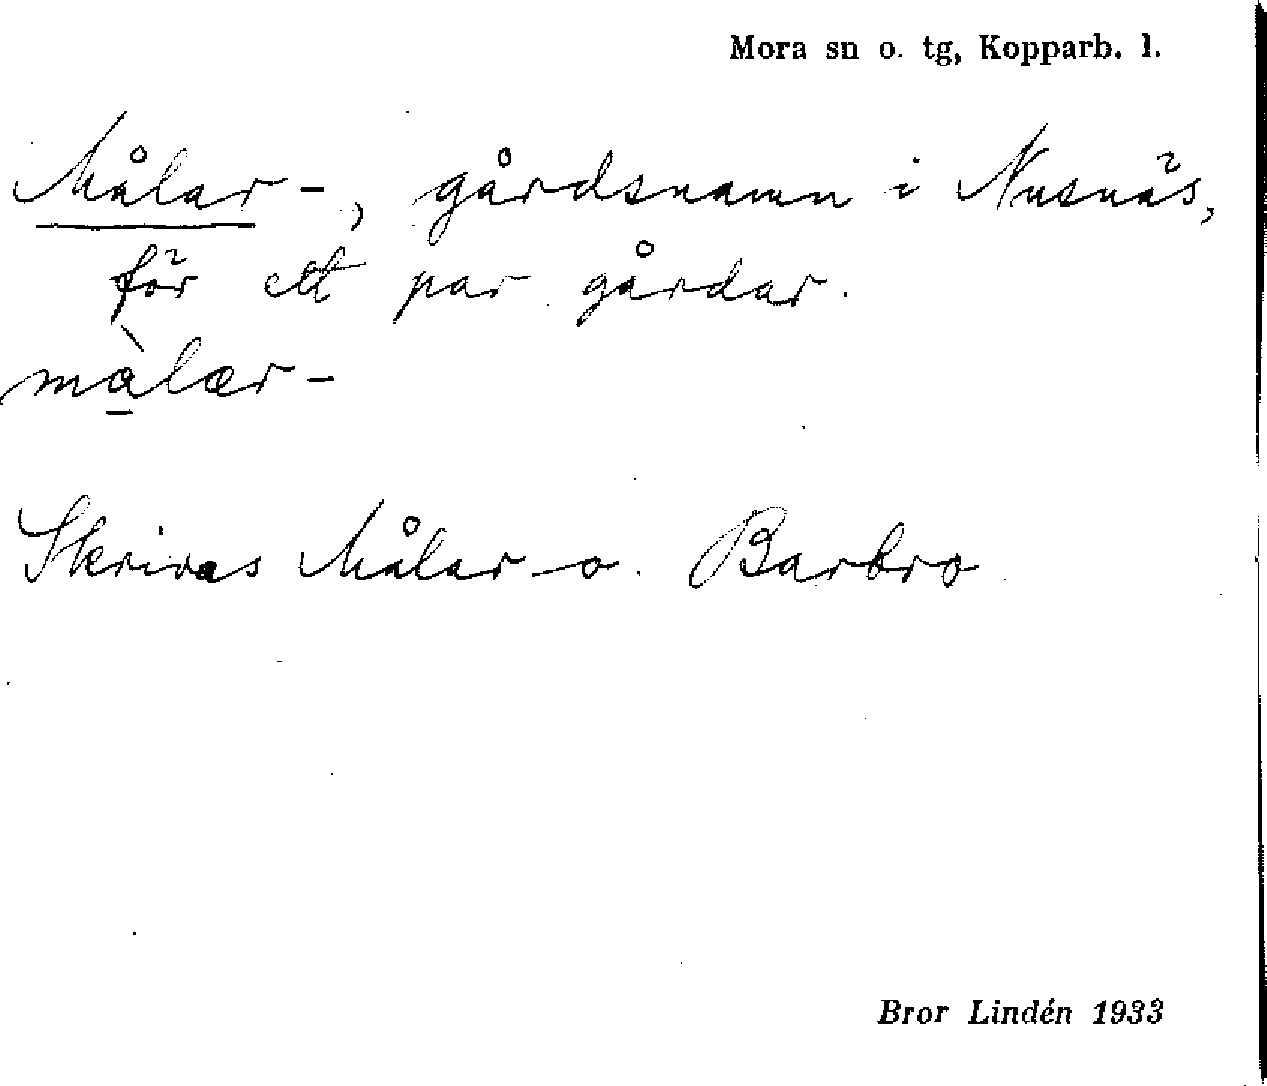 Mora sn o. tg, Kopparb. l.
Målar-, gårdsnamn i Nusnäs,
för ett par gårdar.
mà̱lær-
Skrivas Målar- o. Barbro
Bror Lindén 1933